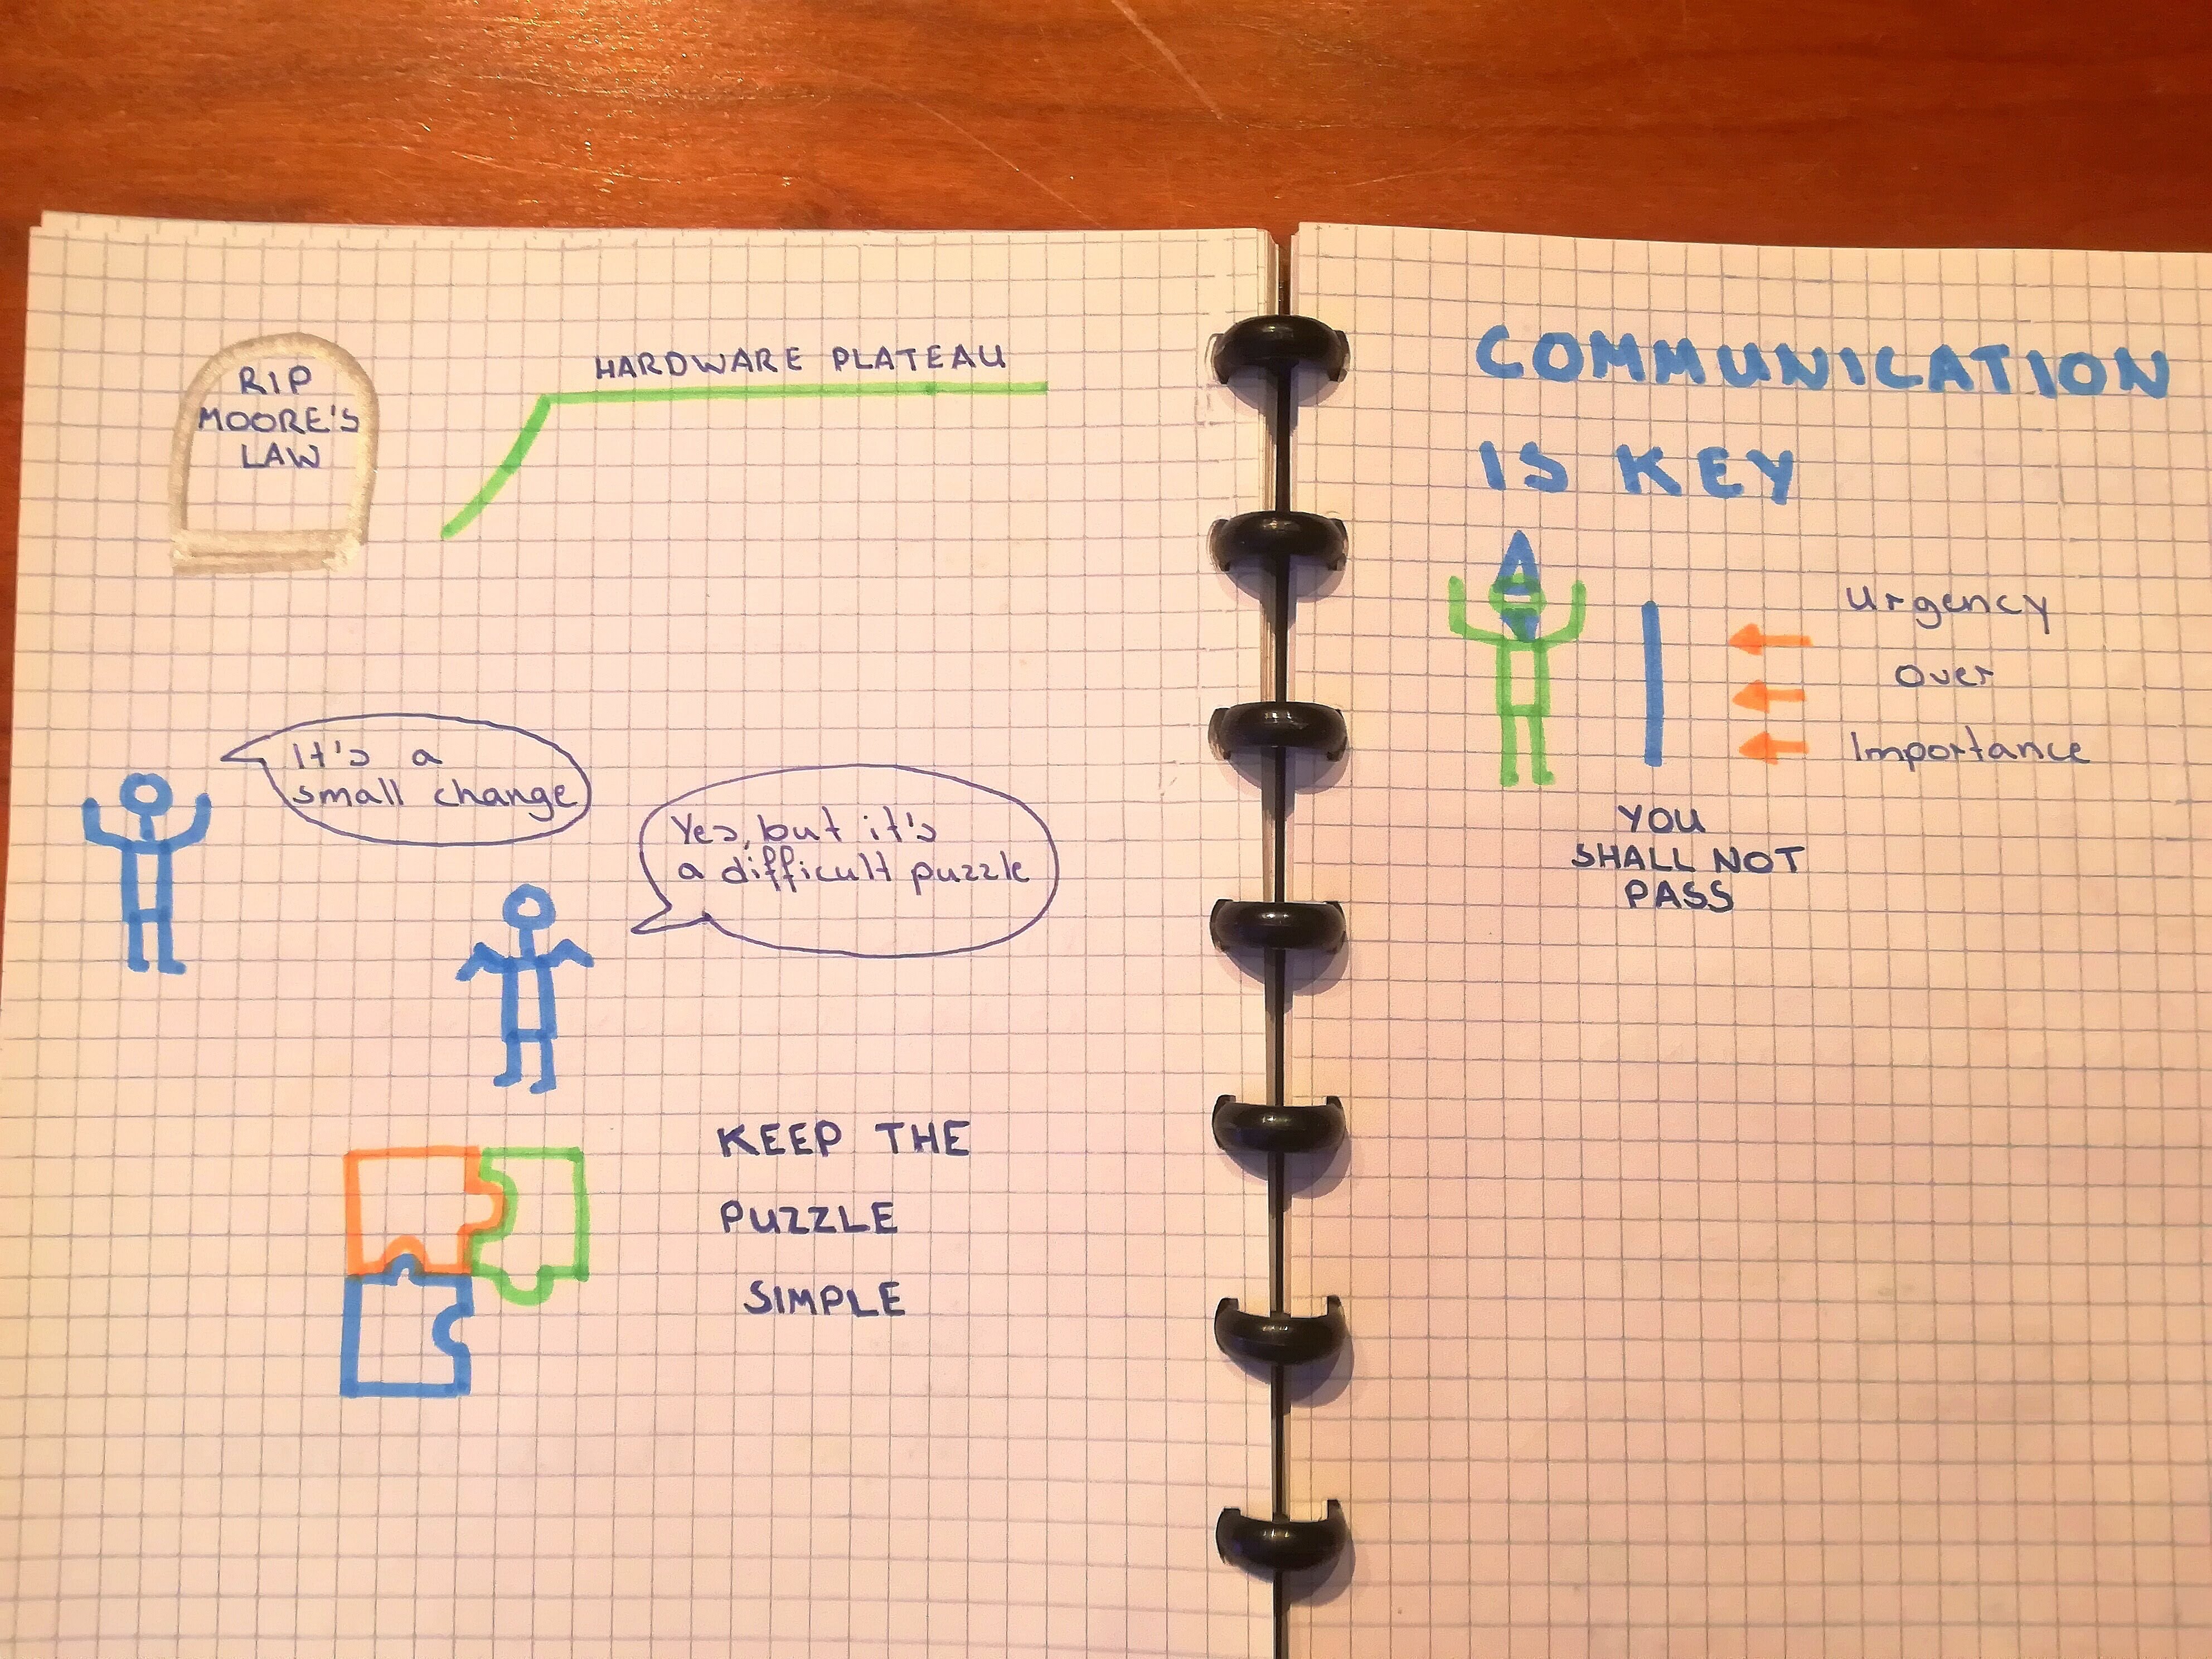 RIP
MOORE'S
LAW
HARDWARE PLATEAU
It's a
small change
Yes, but it's
a difficult puzzle
KEEP THE
PUZZLE
SIMPLE
COMMUNICATION
IS KEY
Urgency
Over
Importance
YOU
SHALL NOT
PASS